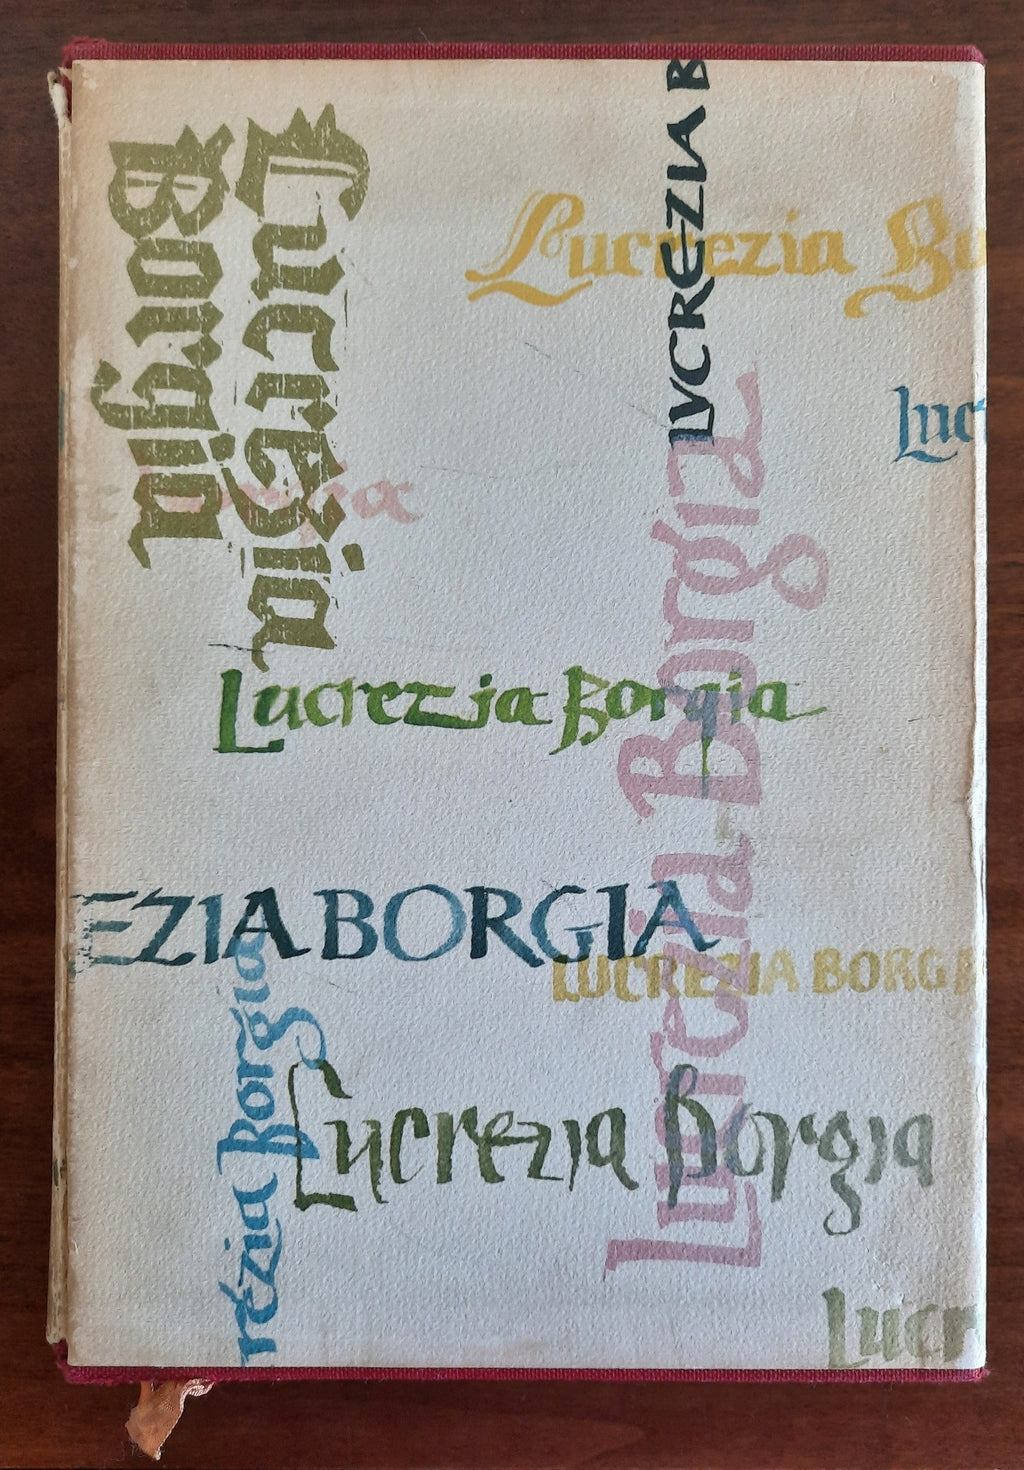 Lucrezia
Borgia
LVCREZIA B
Lucrezia Bo
Luc
Borgia
Lucrezia Borgia
Lucrezia Borgia
EZIA BORGIA
LUCREZIA BORG
rezia Borgia
Lucrezia Borgia
Lucr